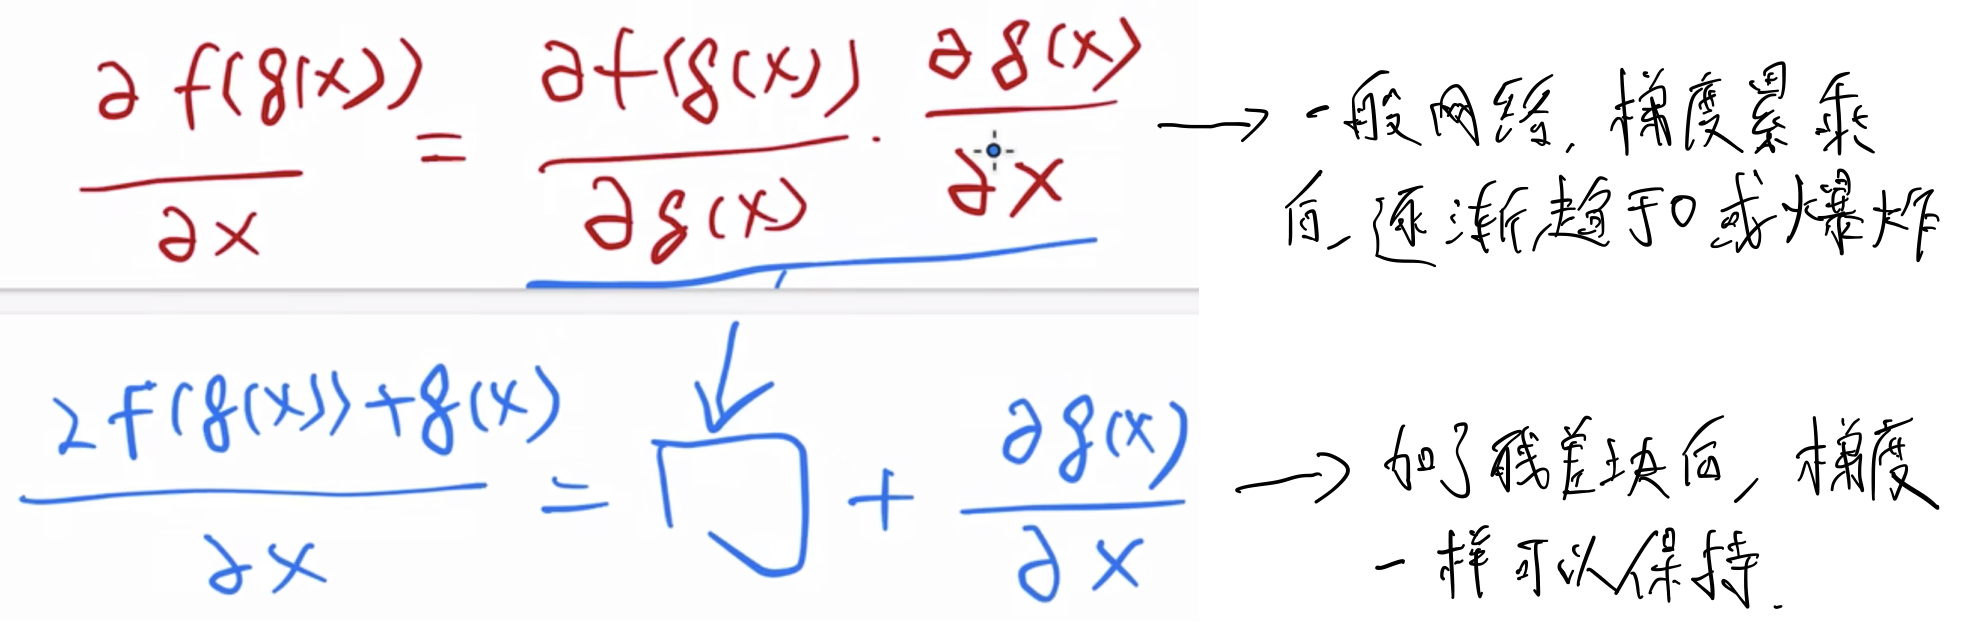 ∂f(g(x))/∂x = ∂f(g(x))/∂g(x) · ∂g(x)/∂x → 一般网络，梯度累乘
后，逐渐趋于0或爆炸
∂f(g(x))+g(x)/∂x = □ + ∂g(x)/∂x → 加了残差块后，梯度
一样可以保持.